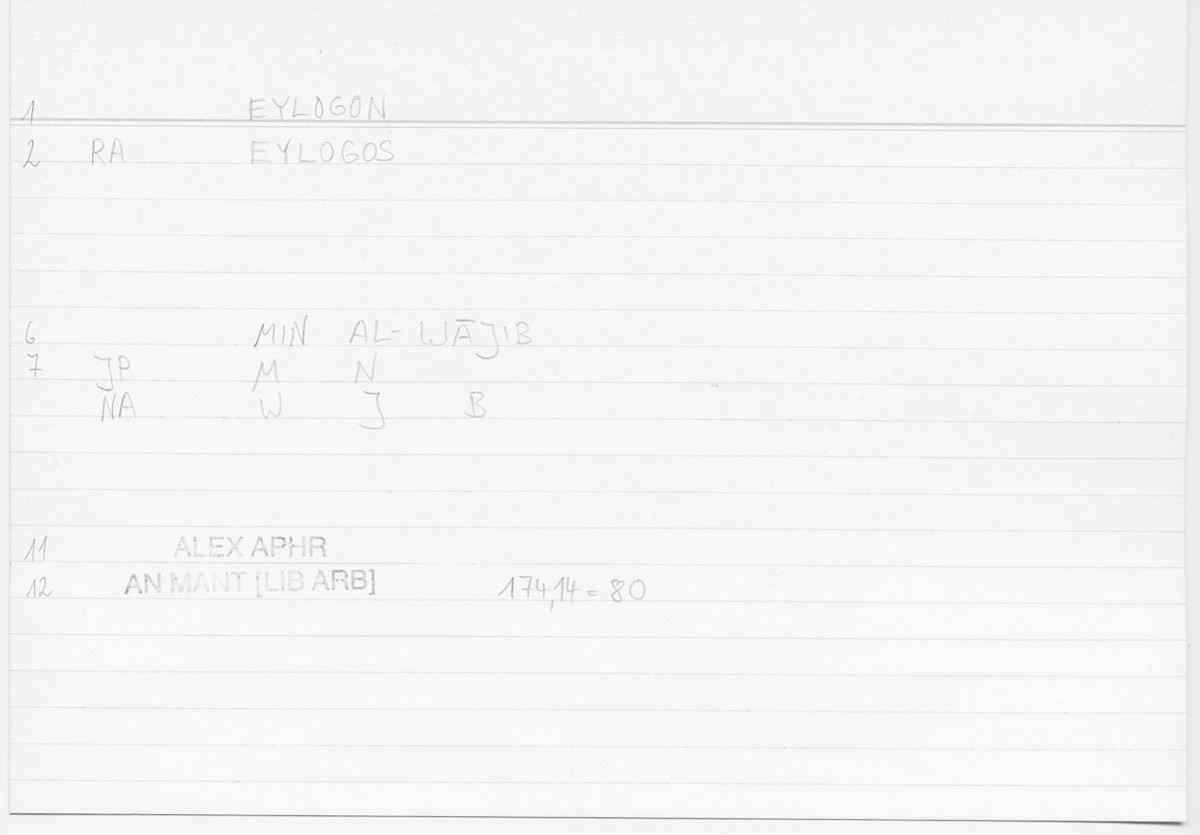 1 EYLOGON
2 RA EYLOGOS
6 MIN AL-WĀJIB
7 JP M N
NA W J B
11 ALEX APHR
12 AN MANT [LIB ARB] 174,14=80